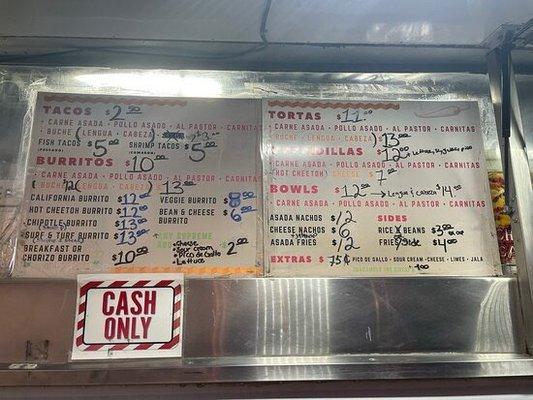 TACOS $2.50
• CARNE ASADA • POLLO ASADO • AL PASTOR • CARNITAS
• BUCHE (LENGUA • CABEZA) $3.00
FISH TACOS $5.00 SHRIMP TACOS $5.00
BURRITOS $10.00
• CARNE ASADA • POLLO ASADO • AL PASTOR • CARNITAS
(BUCHE • LENGUA • CABEZA) 13.00
CALIFORNIA BURRITO $12.00
HOT CHEETOH BURRITO $12.00
CHIPOTLE BURRITO $13.00
SURF & TURF BURRITO $13.00
BREAKFAST OR
CHORIZO BURRITO $10.00
VEGGIE BURRITO $8.00
BEAN & CHEESE $6.00
BURRITO
ANY SUPREME
ADD $2.00
• Cheese
• Sour Cream
• Pico de Gallo
• Lettuce
TORTAS $11.00
CARNE ASADA • POLLO ASADO • AL PASTOR • CARNITAS
BUCHE (LENGUA • CABEZA) $13.00
QUESADILLAS $12.00
CARNE ASADA • POLLO ASADO • AL PASTOR • CARNITAS
HOT CHEETOH CHEESE $7.00
BOWLS $12.00 Lengua & cabeza $14.00
• CARNE ASADA • POLLO ASADO • AL PASTOR • CARNITAS
ASADA NACHOS $12
CHEESE NACHOS $6
ASADA FRIES $12
SIDES
RICE & BEANS $2.00
Fries Side $4.00
EXTRAS $ 75¢ PICO DE GALLO • SOUR CREAM • CHEESE • LIMES • JALA
CASH
ONLY